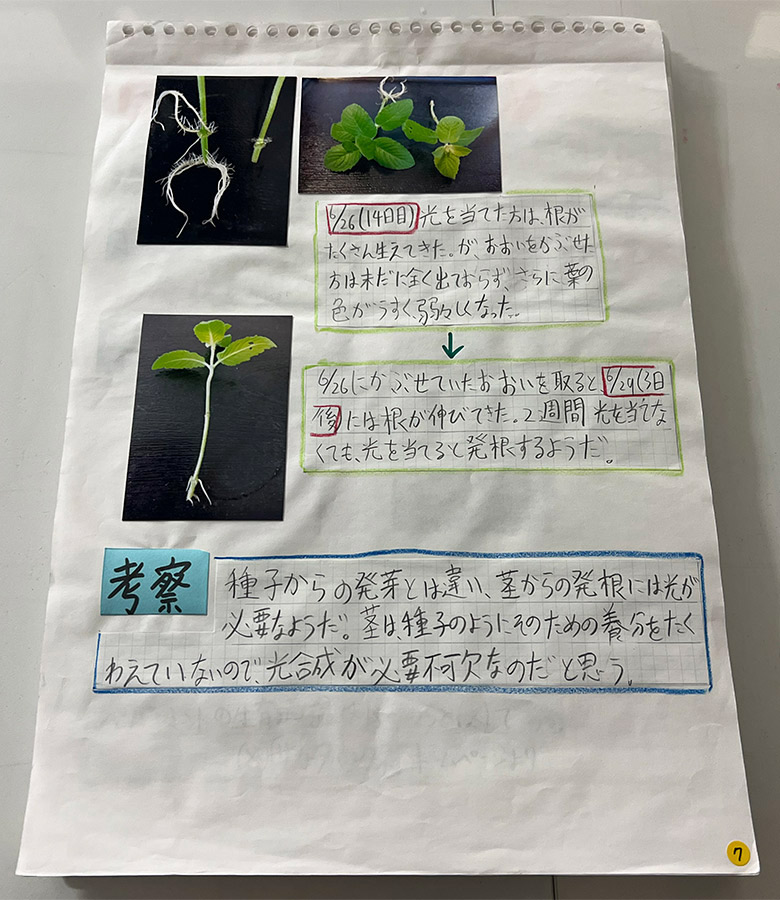 6/26(14日目)光を当てた方は、根が
たくさん生えてきた。が、おおいをかぶせた
方は未だに全く出ておらず、さらに葉の
色がうすく、弱々しくなった。
↓
6/26にかぶせていたおおいを取ると、6/29(3日
後)には根が伸びてきた。2週間 光を当てな
くても、光を当てると発根するようだ。
考察
種子からの発芽とは違い、茎からの発根には光が
必要なようだ。茎は、種子のようにそのための養分をたく
わえていないので、光合成が必要不可欠なのだと思う。
7